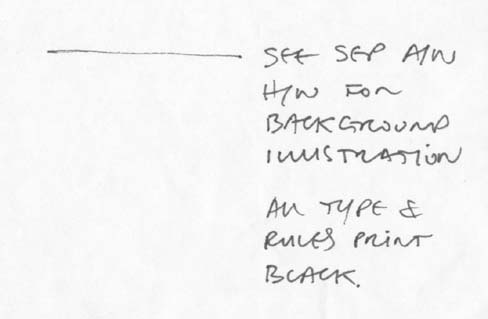 SEE SEP A/W
H/W FOR
BACKGROUND
ILLUSTRATION
ALL TYPE &
RULES PRINT
BLACK.